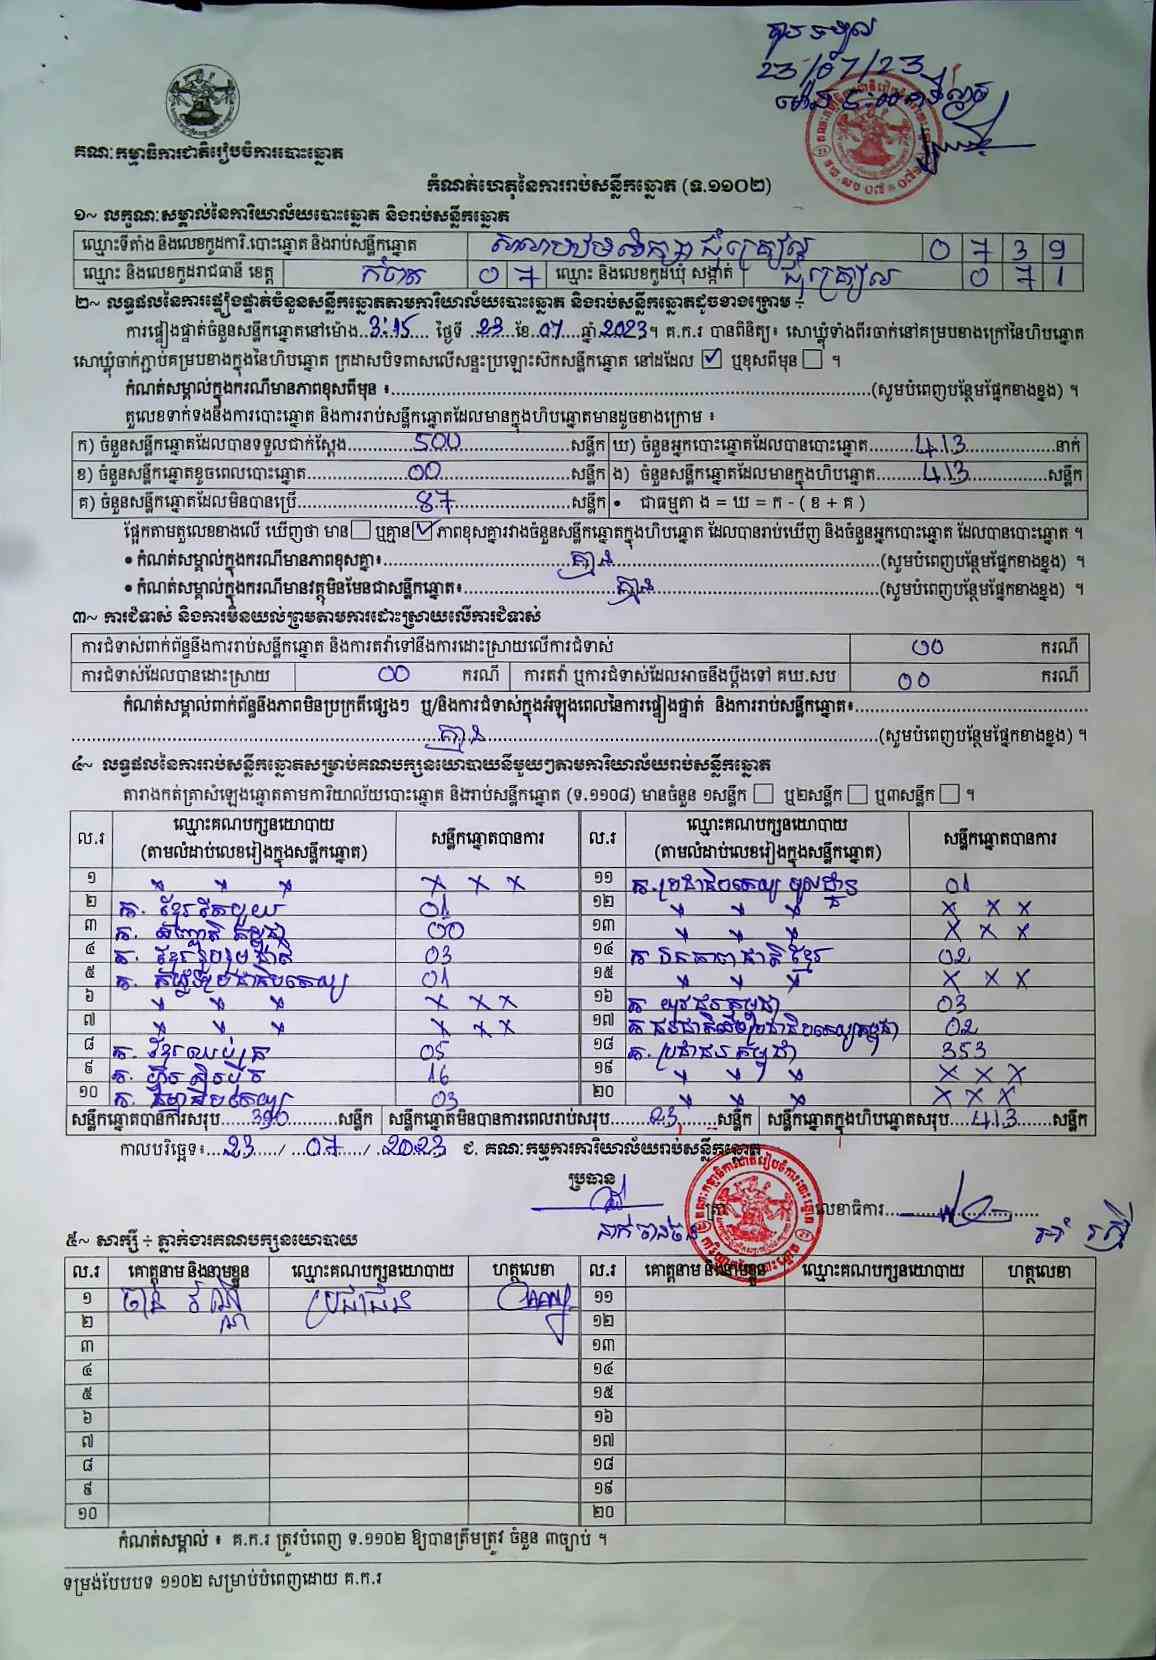 23/07/23
គណៈកម្មាធិការជាតិរៀបចំការបោះឆ្នោត
កំណត់ហេតុនៃការរាប់សន្លឹកឆ្នោត (ទ.១១០២)
១~ លក្ខណៈសម្គាល់នៃការិយាល័យបោះឆ្នោត និងរាប់សន្លឹកឆ្នោត
ឈ្មោះទីតាំង និងលេខកូដការិ.បោះឆ្នោត និងរាប់សន្លឹកឆ្នោត 0 7 3 9
ឈ្មោះ និងលេខកូដរាជធានី ខេត្ត កំពត 0 7 ឈ្មោះ និងលេខកូដឃុំ សង្កាត់ 0 7 1
២~ លទ្ធផលនៃការផ្ទៀងផ្ទាត់ចំនួនសន្លឹកឆ្នោតតាមការិយាល័យបោះឆ្នោត និងរាប់សន្លឹកឆ្នោតដូចខាងក្រោម ÷
ការផ្ទៀងផ្ទាត់ចំនួនសន្លឹកឆ្នោតនៅម៉ោង..3:15.... ថ្ងៃទី ..23..ខែ.07....ឆ្នាំ.2023។ គ.ក.រ បានពិនិត្យ៖ សោឃ្លុំទាំងពីរចាក់នៅគម្របខាងក្រៅនៃហិបឆ្នោត
សោឃ្លុំចាក់ភ្ជាប់គម្របខាងក្នុងនៃហិបឆ្នោត ក្រដាសបិទពាសលើសន្ទះប្រឡោះស៊កសន្លឹកឆ្នោត នៅដដែល ☑ ឬខុសពីមុន ☐ ។
កំណត់សម្គាល់ក្នុងករណីមានភាពខុសពីមុន ៖..........(សូមបំពេញបន្ថែមផ្នែកខាងខ្នង) ។
តួលេខទាក់ទងនឹងការបោះឆ្នោត និងការរាប់សន្លឹកឆ្នោតដែលមានក្នុងហិបឆ្នោតមានដូចខាងក្រោម ៖
ក) ចំនួនសន្លឹកឆ្នោតដែលបានទទួលជាក់ស្តែង..........500..........សន្លឹក ឃ) ចំនួនអ្នកបោះឆ្នោតដែលបានបោះឆ្នោត..........413..........នាក់
ខ) ចំនួនសន្លឹកឆ្នោតខូចពេលបោះឆ្នោត..........00..........សន្លឹក ង) ចំនួនសន្លឹកឆ្នោតដែលមានក្នុងហិបឆ្នោត..........413..........សន្លឹក
គ) ចំនួនសន្លឹកឆ្នោតដែលមិនបានប្រើ..........87..........សន្លឹក • ជាធម្មតា ង = ឃ = ក - ( ខ + គ )
ផ្អែកតាមតួលេខខាងលើ ឃើញថា មាន ☐ ឬគ្មាន ☑ ភាពខុសគ្នារវាងចំនួនសន្លឹកឆ្នោតក្នុងហិបឆ្នោត ដែលបានរាប់ឃើញ និងចំនួនអ្នកបោះឆ្នោត ដែលបានបោះឆ្នោត ។
• កំណត់សម្គាល់ក្នុងករណីមានភាពខុសគ្នា៖..........គ្មាន..........(សូមបំពេញបន្ថែមផ្នែកខាងខ្នង) ។
• កំណត់សម្គាល់ក្នុងករណីមានវត្ថុមិនមែនជាសន្លឹកឆ្នោត៖..........គ្មាន..........(សូមបំពេញបន្ថែមផ្នែកខាងខ្នង) ។
៣~ ការជំទាស់ និងការមិនយល់ព្រមតាមការដោះស្រាយលើការជំទាស់
ការជំទាស់ពាក់ព័ន្ធនឹងការរាប់សន្លឹកឆ្នោត និងការតវ៉ាទៅនឹងការដោះស្រាយលើការជំទាស់ 00 ករណី
ការជំទាស់ដែលបានដោះស្រាយ 00 ករណី ការតវ៉ា ឬការជំទាស់ដែលអាចនឹងប្តឹងទៅ គឃ.សប 00 ករណី
កំណត់សម្គាល់ពាក់ព័ន្ធនឹងភាពមិនប្រក្រតីផ្សេងៗ ឬ/និងការជំទាស់ក្នុងអំឡុងពេលនៃការផ្ទៀងផ្ទាត់ និងការរាប់សន្លឹកឆ្នោត៖..........
..........គ្មាន..........(សូមបំពេញបន្ថែមផ្នែកខាងខ្នង) ។
៤~ លទ្ធផលនៃការរាប់សន្លឹកឆ្នោតសម្រាប់គណបក្សនយោបាយនីមួយៗតាមការិយាល័យរាប់សន្លឹកឆ្នោត
តារាងកត់ត្រាសំឡេងឆ្នោតតាមការិយាល័យបោះឆ្នោត និងរាប់សន្លឹកឆ្នោត (ទ.១១០៨) មានចំនួន ១សន្លឹក ☐ ឬ២សន្លឹក ☐ ឬ៣សន្លឹក ☐ ។
ល.រ ឈ្មោះគណបក្សនយោបាយ (តាមលំដាប់លេខរៀងក្នុងសន្លឹកឆ្នោត) សន្លឹកឆ្នោតបានការ ល.រ ឈ្មោះគណបក្សនយោបាយ (តាមលំដាប់លេខរៀងក្នុងសន្លឹកឆ្នោត) សន្លឹកឆ្នោតបានការ
១ " " " X X X ១១ គ.ប្រជាធិបតេយ្យ មូលដ្ឋាន 01
២ គ. ខ្មែររីតបូយ៍ 01 ១២ " " " X X X
៣ គ. សញ្ជាតិ កម្ពុជា 00 ១៣ " " " X X X
៤ គ. ខ្មែររួបរួមជាតិ 03 ១៤ គ ឯកភាពជាតិខ្មែរ 02
៥ គ. កម្ម៉ាប្រជាធិបតេយ្យ 01 ១៥ " " " X X X
៦ " " " X X X ១៦ គ យុវជនកម្ពុជា 03
៧ " " " X X X ១៧ គ ជនជាតិដើមប្រជាធិបតេយ្យកម្ពុជា 02
៨ គ. ខ្មែរឈប់ក្រ 05 ១៨ គ. ប្រជាជនកម្ពុជា 353
៩ គ. ហ្វ៊ុនស៊ិនប៉ិច 16 ១៩ " " " X X X
១០ គ. ធម្មាធិបតេយ្យ 03 ២០ " " " X X X
សន្លឹកឆ្នោតបានការសរុប.....390..........សន្លឹក សន្លឹកឆ្នោតមិនបានការពេលរាប់សរុប.......23.......សន្លឹក សន្លឹកឆ្នោតក្នុងហិបឆ្នោតសរុប....413.....សន្លឹក
កាលបរិច្ឆេទ៖...23...../...07...../..2023 ជ. គណៈកម្មការការិយាល័យរាប់សន្លឹកឆ្នោត
ប្រធាន
លេខាធិការ..........
៥~ សាក្សី ÷ ភ្នាក់ងារគណបក្សនយោបាយ
ល.រ គោត្តនាម និងនាមខ្លួន ឈ្មោះគណបក្សនយោបាយ ហត្ថលេខា ល.រ គោត្តនាម និងនាមខ្លួន ឈ្មោះគណបក្សនយោបាយ ហត្ថលេខា
១ ប្រជាជន ១១
២ ១២
៣ ១៣
៤ ១៤
៥ ១៥
៦ ១៦
៧ ១៧
៨ ១៨
៩ ១៩
១០ ២០
កំណត់សម្គាល់ ៖ គ.ក.រ ត្រូវបំពេញ ទ.១១០២ ឱ្យបានត្រឹមត្រូវ ចំនួន ៣ច្បាប់ ។
ទម្រង់បែបបទ ១១០២ សម្រាប់បំពេញដោយ គ.ក.រ